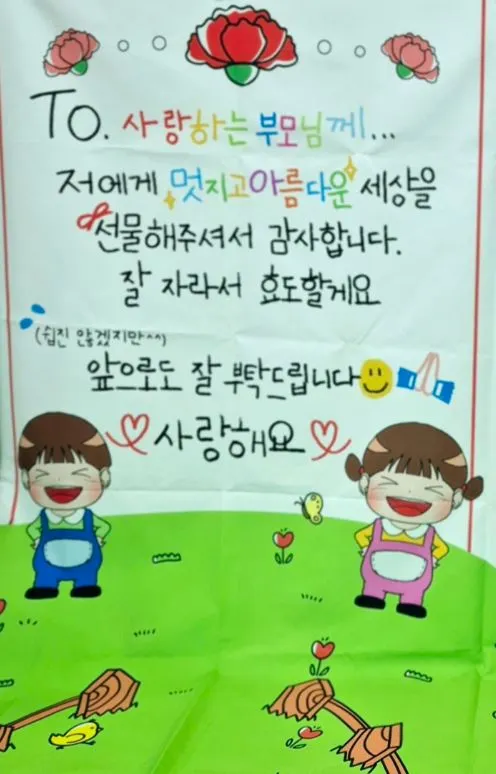 To. 사랑하는 부모님께...
저에게 멋지고아름다운 세상을
선물해주셔서 감사합니다.
잘 자라서 효도할게요
(쉽진 않겠지만^^)
앞으로도 잘 부탁드립니다
사랑해요